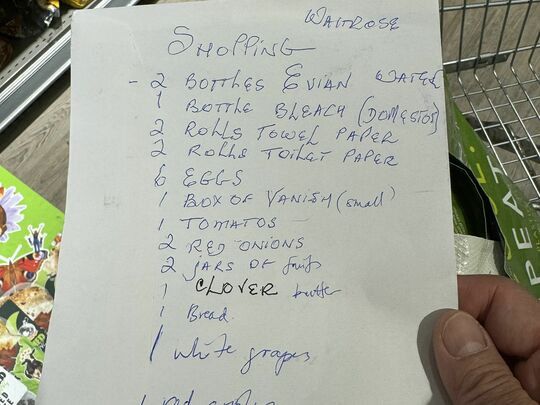 WAITROSE
SHOPPING
- 2 BOTTLES EVIAN WATER
1 BOTTLE BLEACH (DOMESTOS)
2 ROLLS TOWEL PAPER
2 ROLLS TOILET PAPER
6 EGGS
1 BOX OF VANISH (small)
1 TOMATOS
2 RED ONIONS
2 JARS OF fruits
1 CLOVER butter
1 Bread.
1 white grapes
1 red
PEAT